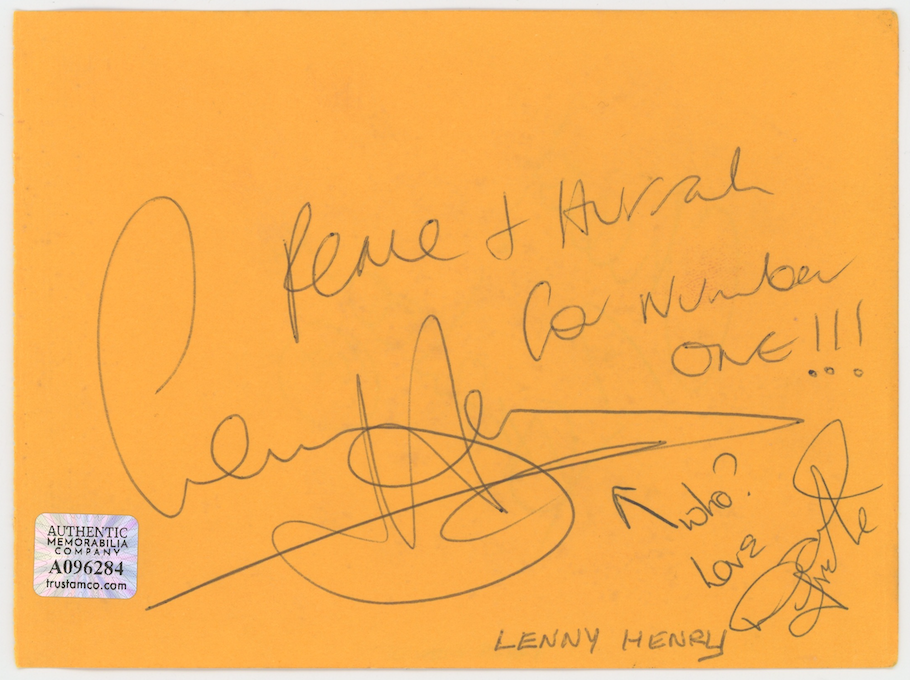 Peace + Hurrah
for Number
ONE!!!
Lenny Henry
↖ who?
Love
LENNY HENRY
AUTHENTIC
MEMORABILIA
COMPANY
A096284
trustamco.com